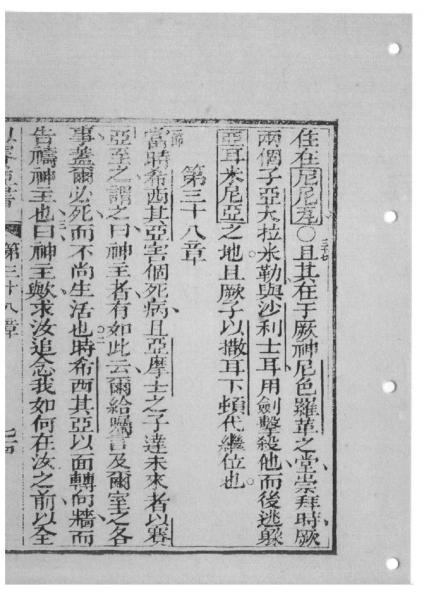 住在尼尼瓦○三十七且其在于厥神尼色羅革之堂崇拜時厥
兩個子亞大拉米勒與沙利士耳用劍擊殺他而後逃躲
亞耳米尼亞之地且厥子以撒耳下頓代繼位也
第三十八章
當時希西其亞害個死病且亞摩士之子達未來者以賽
亞至之謂之曰神王者有如此云爾給囑言及爾室之各
事蓋爾必死而不尚生活也○二時希西其亞以面轉向牆而
告禱神王也三曰神王歟求汝追念我如何在汝之前以全
書 第三十八章